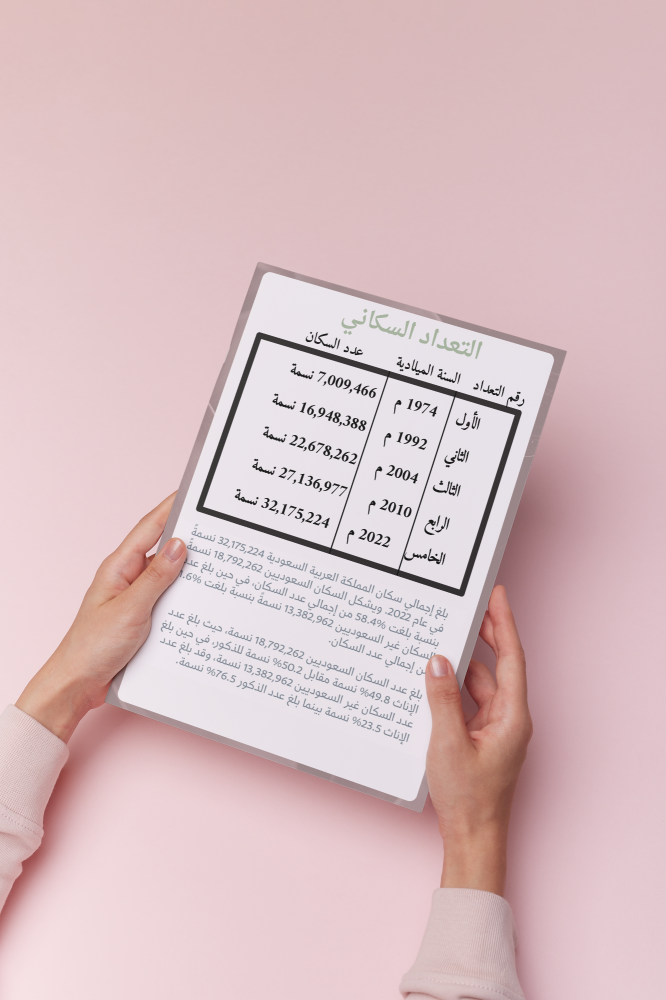 التعداد السكاني
رقم التعداد السنة الميلادية عدد السكان
الأول 1974 م 7,009,466 نسمة
الثاني 1992 م 16,948,388 نسمة
الثالث 2004 م 22,678,262 نسمة
الرابع 2010 م 27,136,977 نسمة
الخامس 2022 م 32,175,224 نسمة
بلغ إجمالي سكان المملكة العربية السعودية 32,175,224 نسمةً
في عام 2022. ويشكل السكان السعوديين 18,792,262 نسمة
بنسبة بلغت 58.4% من إجمالي عدد السكان، في حين بلغ عدد
السكان غير السعوديين 13,382,962 نسمةً بنسبة بلغت
من إجمالي عدد السكان.
بلغ عدد السكان السعوديين 18,792,262 نسمة، حيث بلغ عدد
الإناث 49.8% نسمة مقابل 50.2% نسمة للذكور، في حين بلغ
عدد السكان غير السعوديين 13,382,962 نسمة، وقد بلغ عدد
الإناث 23.5% نسمة بينما بلغ عدد الذكور 76.5% نسمة.